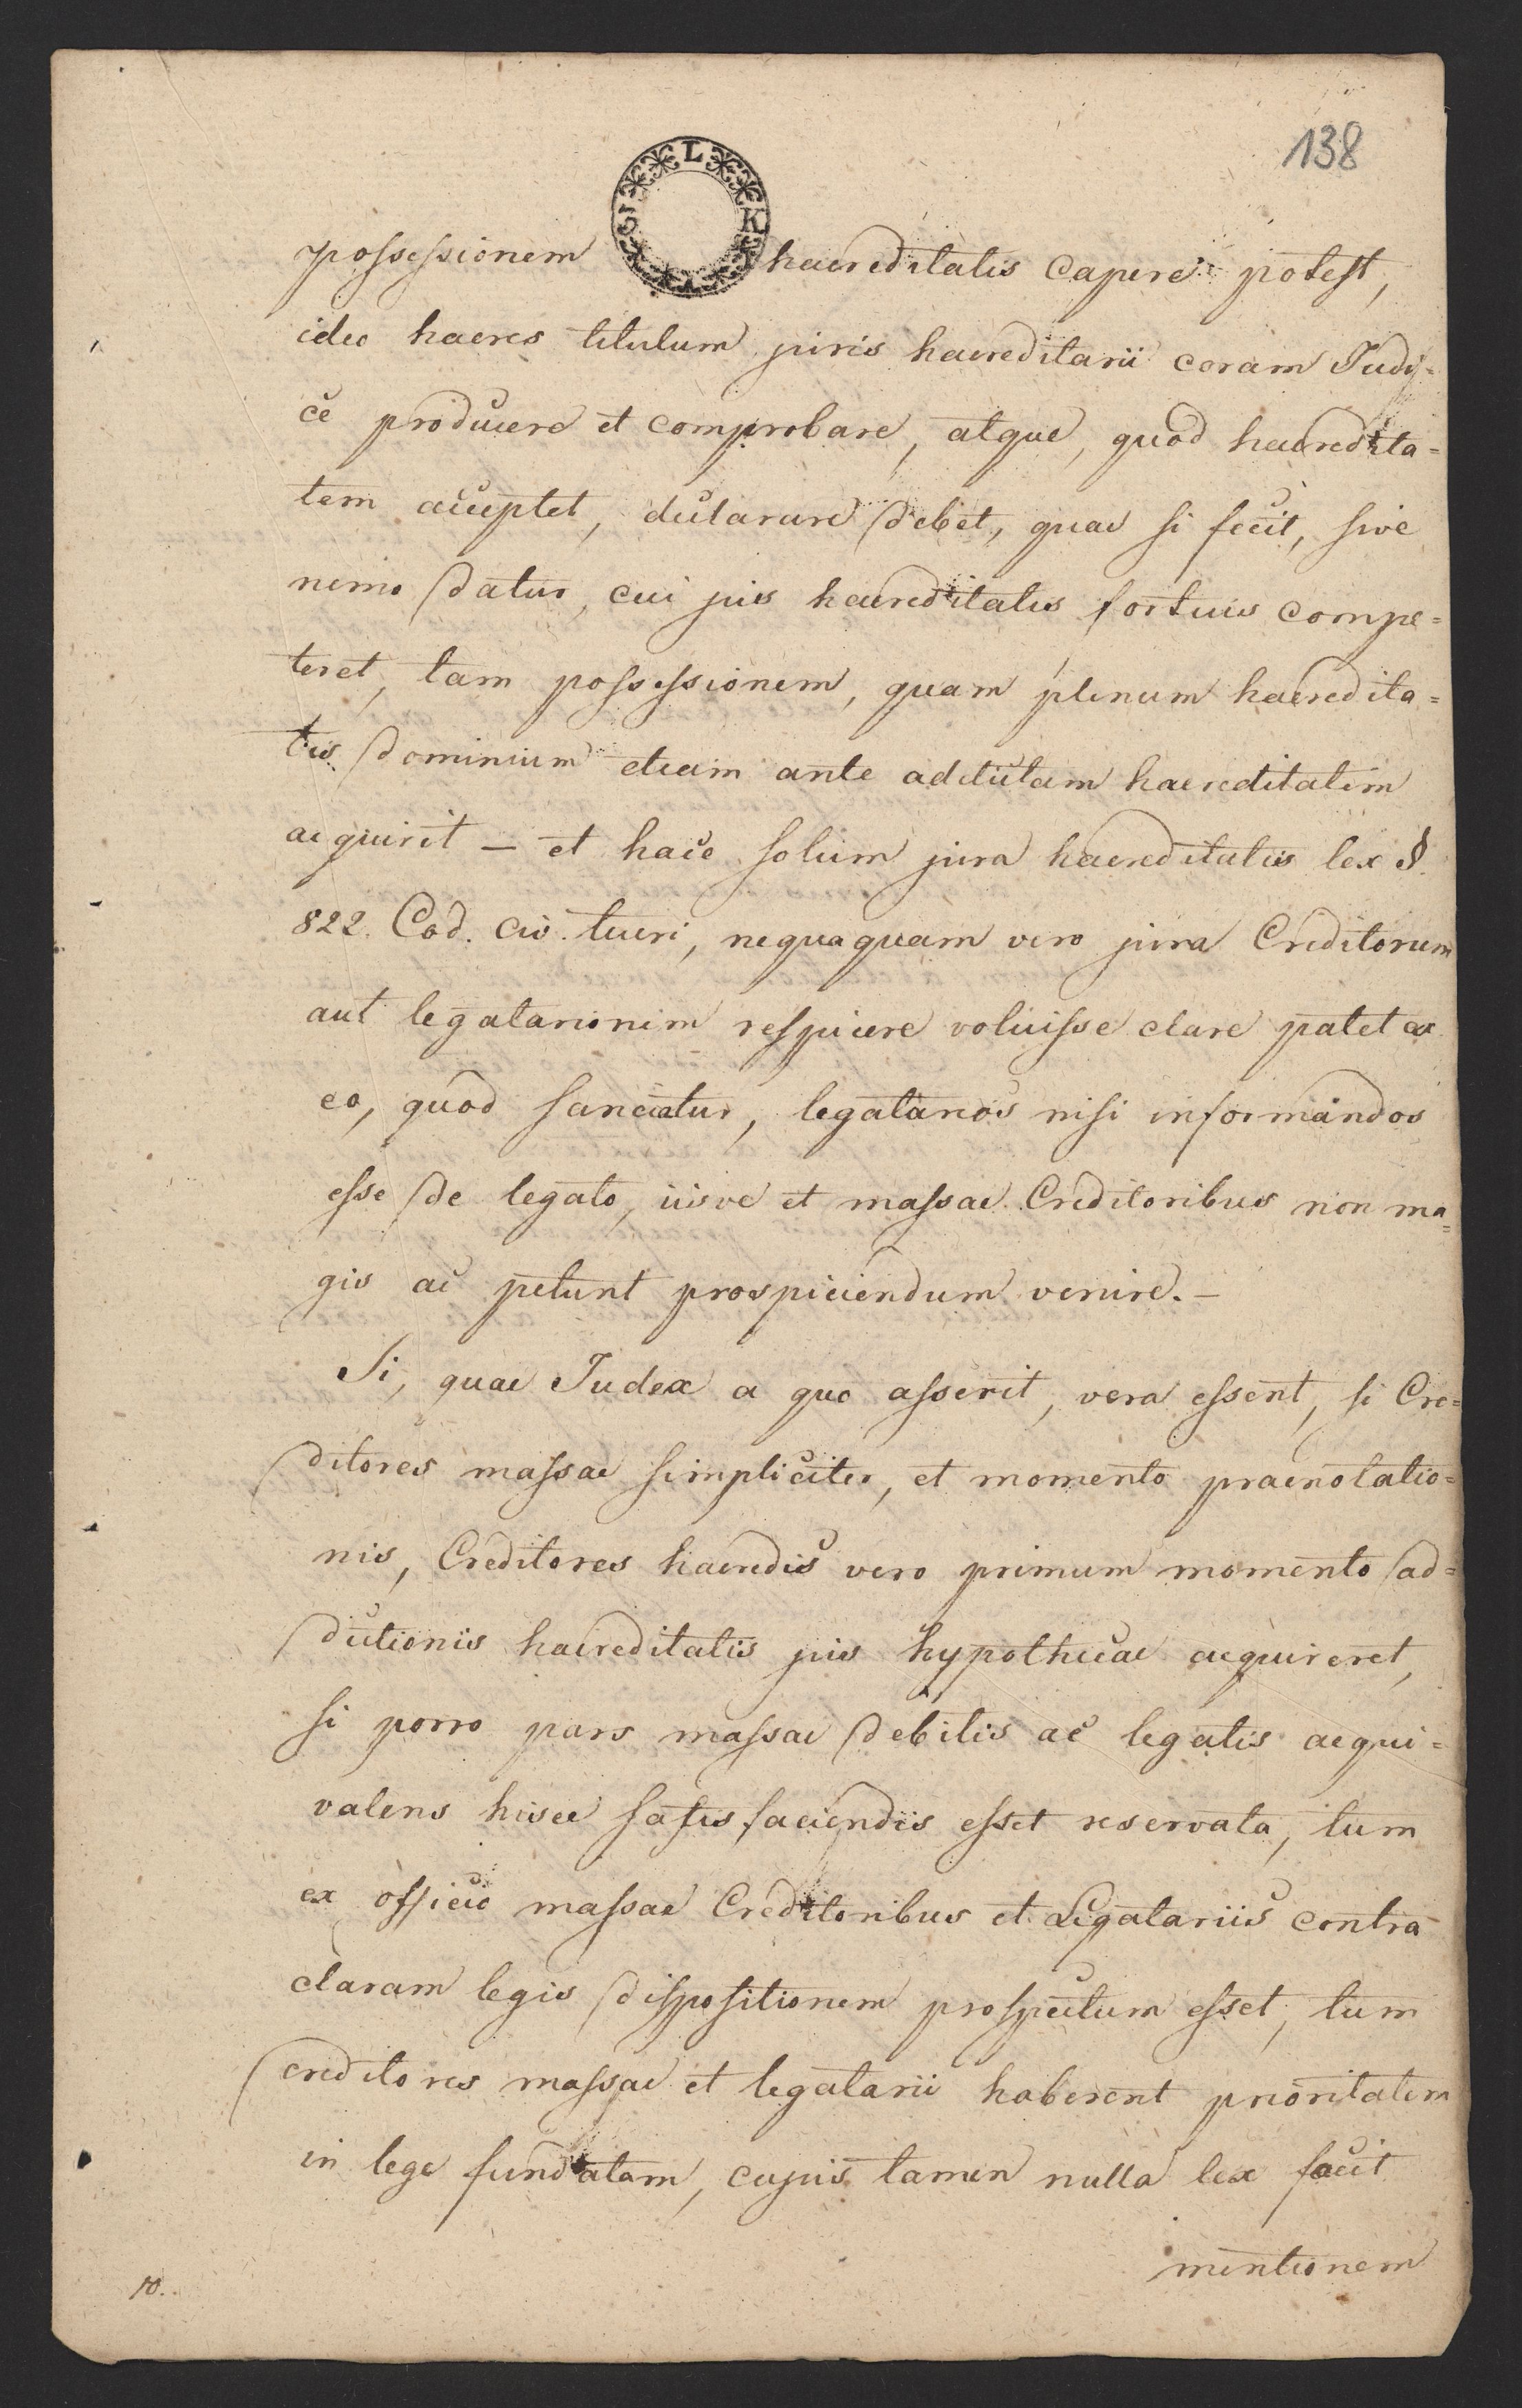 138
L
S K
possessionem haereditatis capere potest,
ideo haeres titulum juris haereditarii coram Judi-
ce producere et comprobare, atque, quod haeredita=
tem acceptet, declarare debet, quae si fecit, sive
nemo datur, cui jus haereditatis fortius compe=
teret, tam possessionem, quam plenum haeredita=
tis dominium etiam ante addictam haereditatem
acquirit — et haec solum jura haereditatis lex §
822. Cod. civ. tueri, nequaquam vero jura Creditorum
aut legatariorum respicere voluisse clare patet ex
eo, quod sanciatur, legatarios nisi informandos
esse de legato, iisve et massae Creditoribus non ma=
gis ac petunt prospiciendum venire. —
Si, quae Judex a quo asserit, vera essent, si Cre=
ditores massae simpliciter, et momento praenotatio=
nis, Creditores haeredis vero primum momento ad=
dictionis haereditatis jus hypothecae acquireret,
si porro pars massae debitis ac legatis aequi=
valens hisce satisfaciendis esset reservata, tum
ex officio massae Creditoribus et Legatariis contra
claram legis dispositionem prospectum esset, tum
creditores massae et legatarii haberent prioritatem
in lege fundatam, cujus tamen nulla lex facit
mentionem
10.